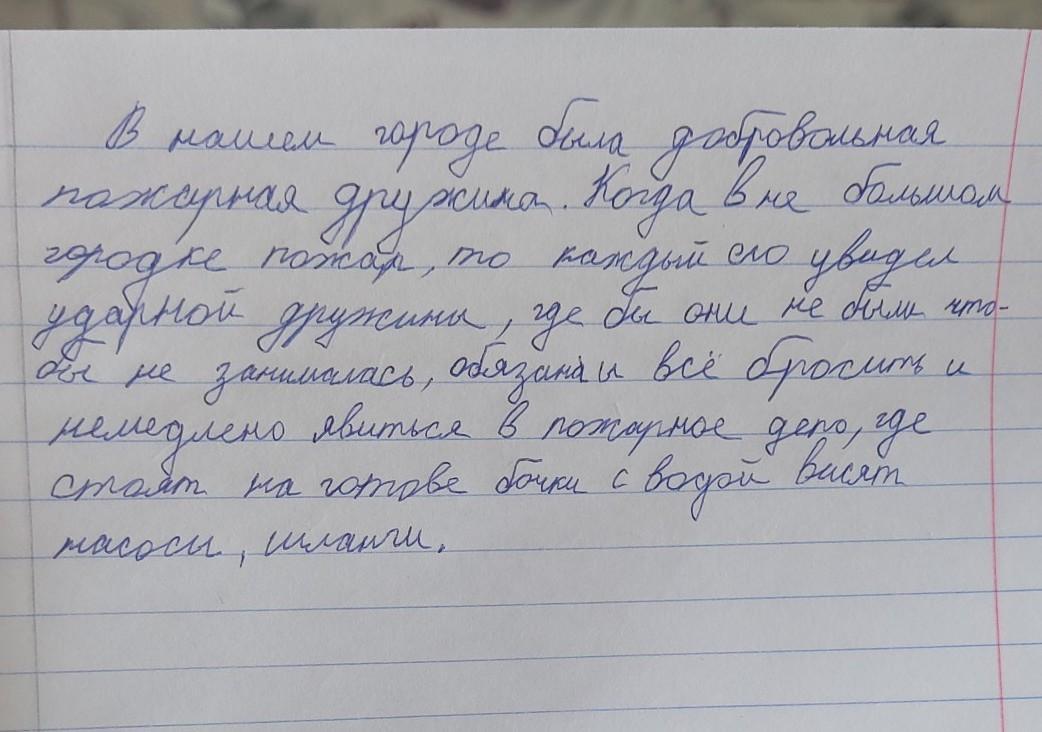 В нашем городе была добровольная
пожарная дружина. Когда в не большом
городке пожар, то каждый его увидел
ударной дружины, где бы они не были что-
бы не занималась, обязана и всё бросить и
немедлено явиться в пожарное депо, где
стоят на готове бочки с водой висят
насосы, шланги.